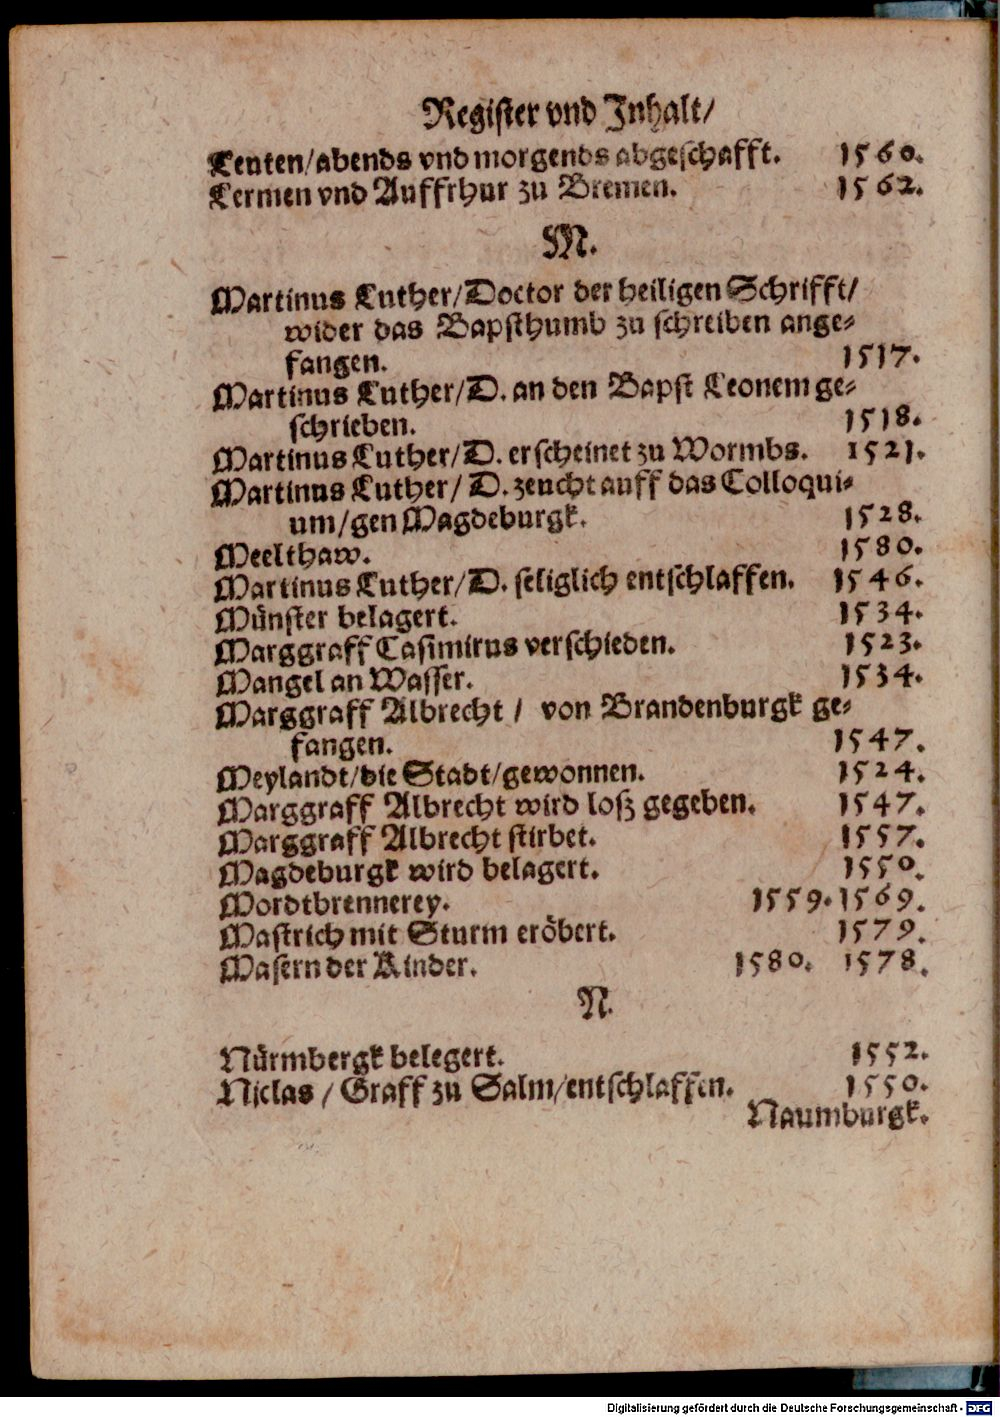 Register vnd Inhalt/
Leuten/abends vnd morgends abgeschafft. 1560.
Lermen vnd Auffrhur zu Bremen. 1562.
M.
Martinus Luther/Doctor der heiligen Schrifft/
wider das Bapsthumb zu schreiben ange⸗
fangen. 1517.
Martinus Luther/D. an den Bapst Leonem ge⸗
schrieben. 1518.
Martinus Luther/D. erscheinet zu Wormbs. 1521.
Martinus Luther/ D. zeucht auff das Colloqui⸗
um/gen Magdeburgk. 1528.
Meelthaw. 1580.
Martinus Luther/D. seliglich entschlaffen. 1546.
Münster belagert. 1534.
Marggraff Casimirus verschieden. 1523.
Mangel an Wasser. 1534.
Marggraff Albrecht / von Brandenburgk ge⸗
fangen. 1547.
Meylandt/die Stadt/gewonnen. 1524.
Marggraff Albrecht wird loß gegeben. 1547.
Marggraff Albrecht stirbet. 1557.
Magdeburgk wird belagert. 1550.
Mordtbrennerey. 1559. 1569.
Mastrich mit Sturm eröbert. 1579.
Masern der Kinder. 1580. 1578.
N.
Nürmbergk belegert. 1552.
Niclas / Graff zu Salm/entschlaffen. 1550.
Naumburgk.
Digitalisierung gefördert durch die Deutsche Forschungsgemeinschaft - DFG